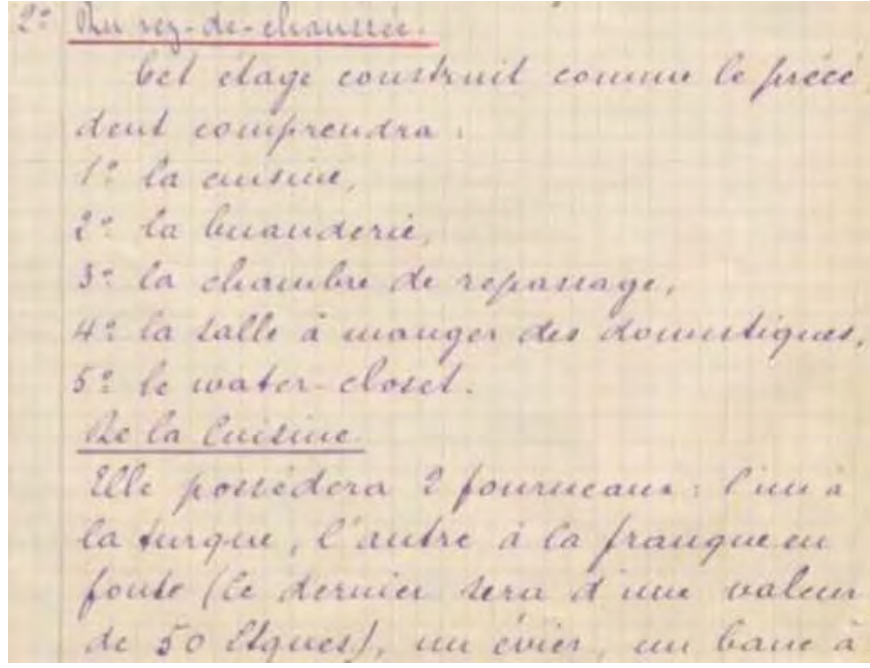 2º Au rez-de-chaussée.
Cet étage construit comme le précé
dent comprendra :
1º la cuisine,
2º la buanderie,
3º la chambre de repassage,
4º la salle à manger des domestiques,
5º le water-closet.
De la Cuisine.
Elle possèdera 2 fourneaux : l'un à
la turque, l'autre à la franque en
fonte (le dernier sera d'une valeur
de 50 Ltques), un évier, un banc à